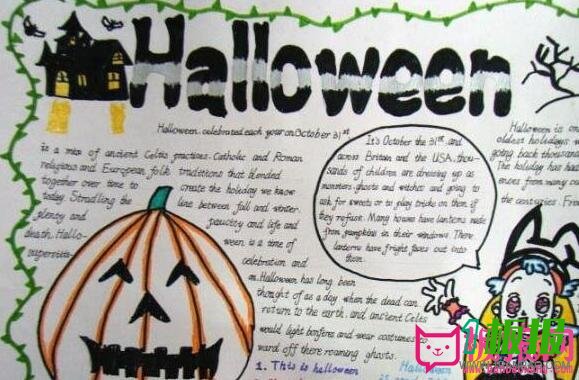 Halloween
Halloween, celebrated each year on October 31st
is a mix of ancient Celtic practices, Catholic and Roman
religious and European folk traditions that blended
together over time to create the holiday we know
today. Stradling the line between fall and winter,
plenty and paucity and life and
death, Hallo- ween is a time of
celebration and
superstitio
on. Halloween has long been
thought of as a day when the dead can
return to the earth, and ancient Celts
would light bonfires and wear costumes to
ward off there roaming ghosts.
1. This is halloween
It's October the 31st and
across Britain and the USA, thou-
sands of children are dressing up as
monsters, ghosts and witches and going to
ask for sweets or to play tricks on them if
they refuse. Many houses have lanterns made
from pumpkins in their windows. These
lanterns have fright faces cut into
them.
Halloween is on
oldest holidays w
going back thousand
The holiday has had
ences from many cu
the centuries. Fro
Halloween